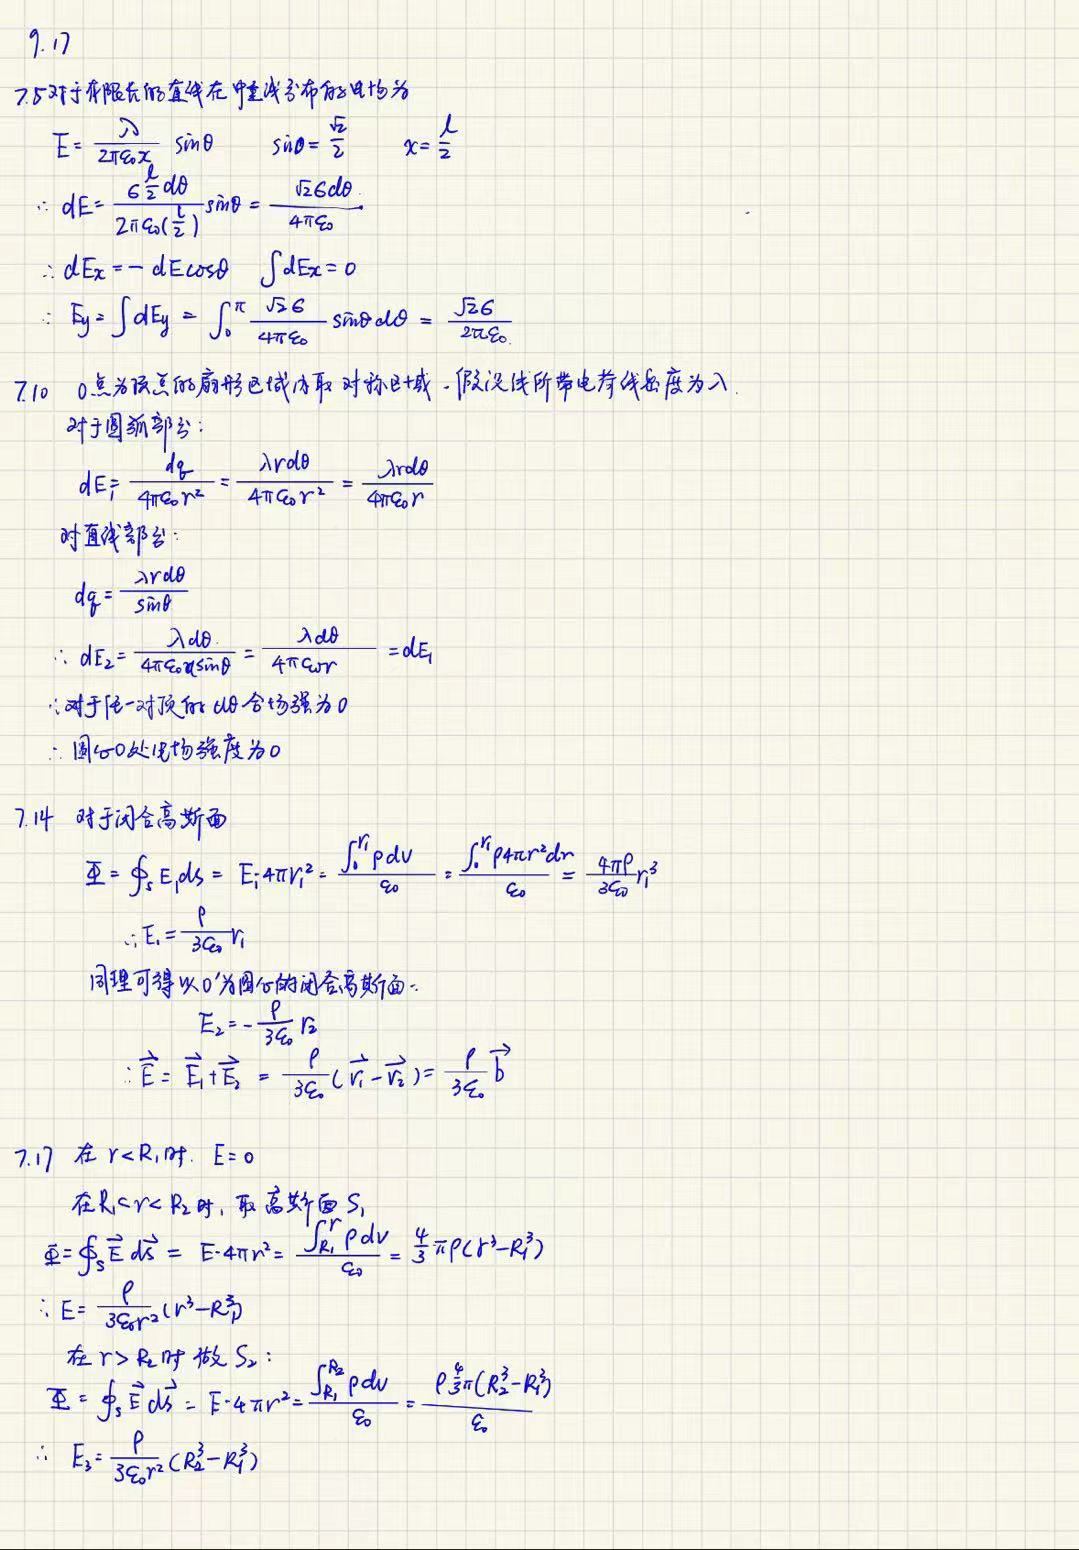 9.17
7.5 对于有限长的直线在中垂线分布的电场为
E = λ/(2πε₀x) sinθ  sinθ = √2/2  x = l/2
∴ dE = (б l/2 dθ)/(2πε₀(l/2)) sinθ = (√2 б dθ)/(4πε₀)
∴ dEx = - dE cosθ  ∫dEx = 0
∴ Ey = ∫dEy = ∫₀^π (√2 б)/(4πε₀) sinθ dθ = (√2 б)/(2πε₀)
7.10 O点为顶点的扇形区域内取对称区域. 假设线所带电荷线密度为λ.
对于圆弧部分:
dE₁ = dq/(4πε₀r²) = λrdθ/(4πε₀r²) = λrdθ/(4πε₀r)
对直线部分:
dq = λrdθ/sinθ
∴ dE₂ = λdθ/(4πε₀ sinθ) = λdθ/(4πε₀r) = dE₁
∴ 对于任一对顶的dθ合场强为0
∴ 圆心O处电场强度为0
7.14 对于闭合高斯面
Φ = ∮s E₁ds = E₁·4πr₁² = (∫₀^r₁ ρdv)/ε₀ = (∫₀^r₁ ρ4πr²dr)/ε₀ = (4πρ/3ε₀) r₁³
∴ E₁ = (ρ/3ε₀) r₁
同理可得以O'为圆心的闭合高斯面.
E₂ = - (ρ/3ε₀) r₂
∴ E⃗ = E⃗₁ + E⃗₂ = (ρ/3ε₀)(r⃗₁ - r⃗₂) = (ρ/3ε₀) b⃗
7.17 在 r<R₁时. E=0
在R₁<r<R₂时, 取高斯面S₁
Φ = ∮s E⃗ ds⃗ = E·4πr² = (∫_R₁^r ρdv)/ε₀ = 4/3 πρ(r³-R₁³)
∴ E = ρ/(3ε₀r²) (r³-R₁³)
在 r>R₂时 做S₂:
Φ = ∮s E⃗ ds⃗ = E·4πr² = (∫_R₁^R₂ ρdv)/ε₀ = (ρ 4/3 π(R₂³-R₁³))/ε₀
∴ E₃ = ρ/(3ε₀r²) (R₂³-R₁³)